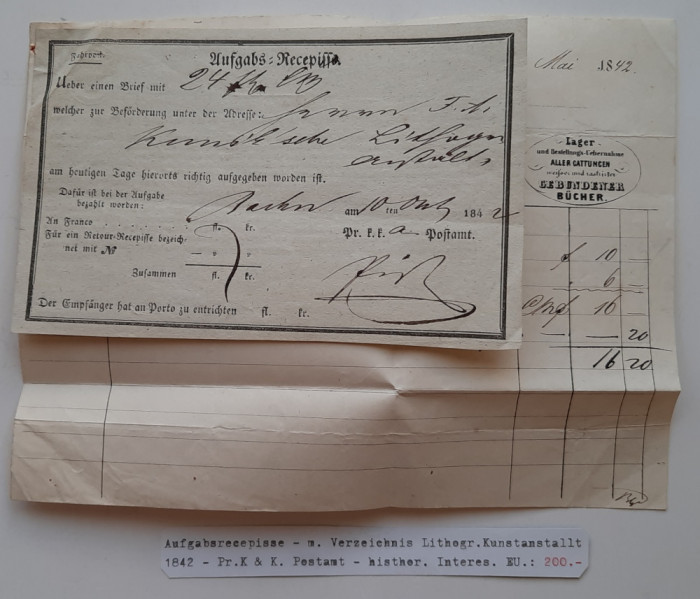 Aufgabs-Recepisse.
Ueber einen Brief mit 24
welcher zur Beförderung unter der Adresse: Herrn
Lithogr
Anstalt
am heutigen Tage hierorts richtig aufgegeben worden ist.
Dafür ist bei der Aufgabe
bezahlt worden:
am 10 ten 1842
An Franco . . . . . . . fl. kr.
Pr. k. k. a Postamt.
Für ein Retour-Recepisse bezeich-
net mit №
Zusammen fl. kr.
Der Empfänger hat an Porto zu entrichten fl. kr.
Mai 1842.
Lager
und Bestellungs-Uebernahme
ALLER GATTUNGEN
GEBUNDENER
BÜCHER.
f 10
6
f 16
20
16 20
Aufgabsrecepisse - m. Verzeichnis Lithogr.Kunstanstallt
1842 - Pr.K & K. Postamt - histhor. Interes. EU.: 200.-